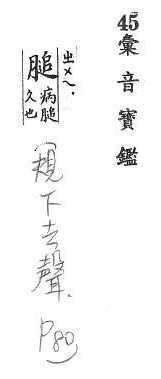 45彙音寶鑑
ㄓㄨㄟˋ
膇
病膇
久也
(規下去聲. P80)